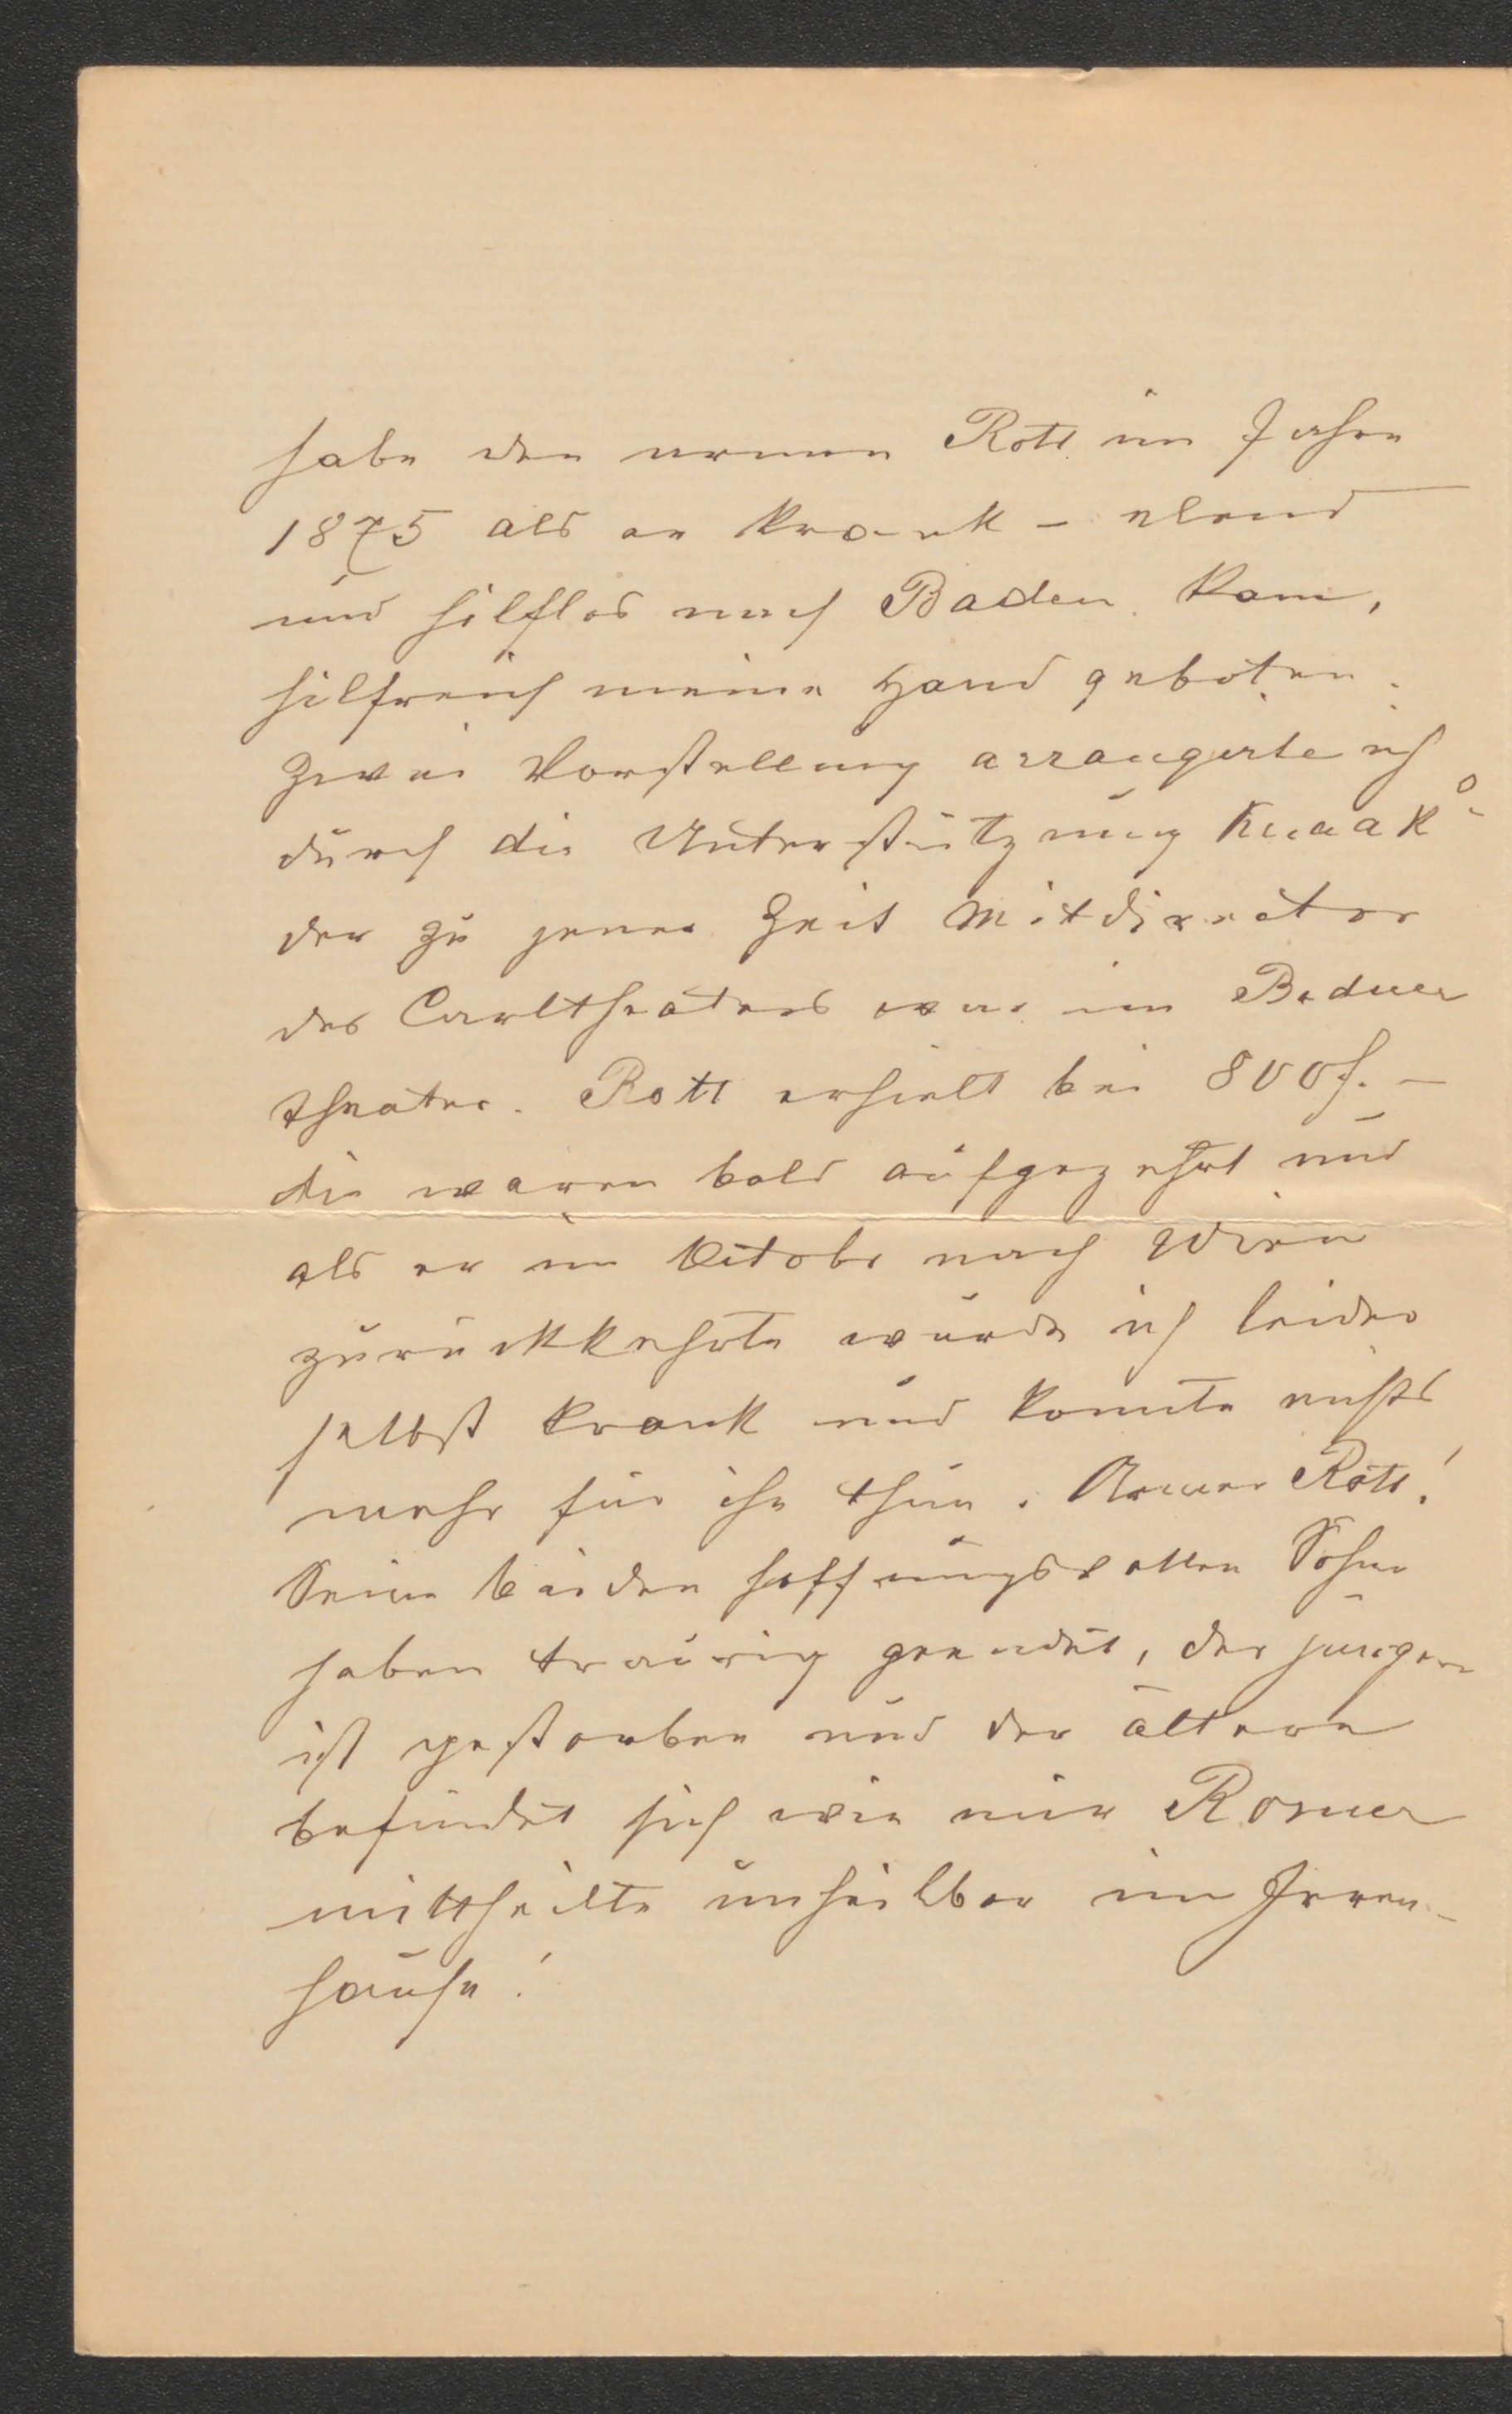 habe den armen Rott im Jahre
1875 als er krank – elend
und hilflos nach Baden kam,
hilfreich meine Hand geboten.
Zwei Vorstellung arrangirte ich
durch die Unterstützung Knaak's
der zu jener Zeit Mitdirector
des Carltheaters war im Badner
Theater. Rott erhielt bei 800 f. –
die waren bald aufgezehrt und
als er im Octobr nach Wien
zurückkehrte wurde ich leider
selbst krank und konnte nichts
mehr für ihn thun. Armer Rott!
Seine beiden hoffnungsvollen Söhne
haben traurig geendet, der jüngere
ist gestorben und der ältere
befindet sich wie mir Rosner
mittheilte unheilbar im Irren-
hause!